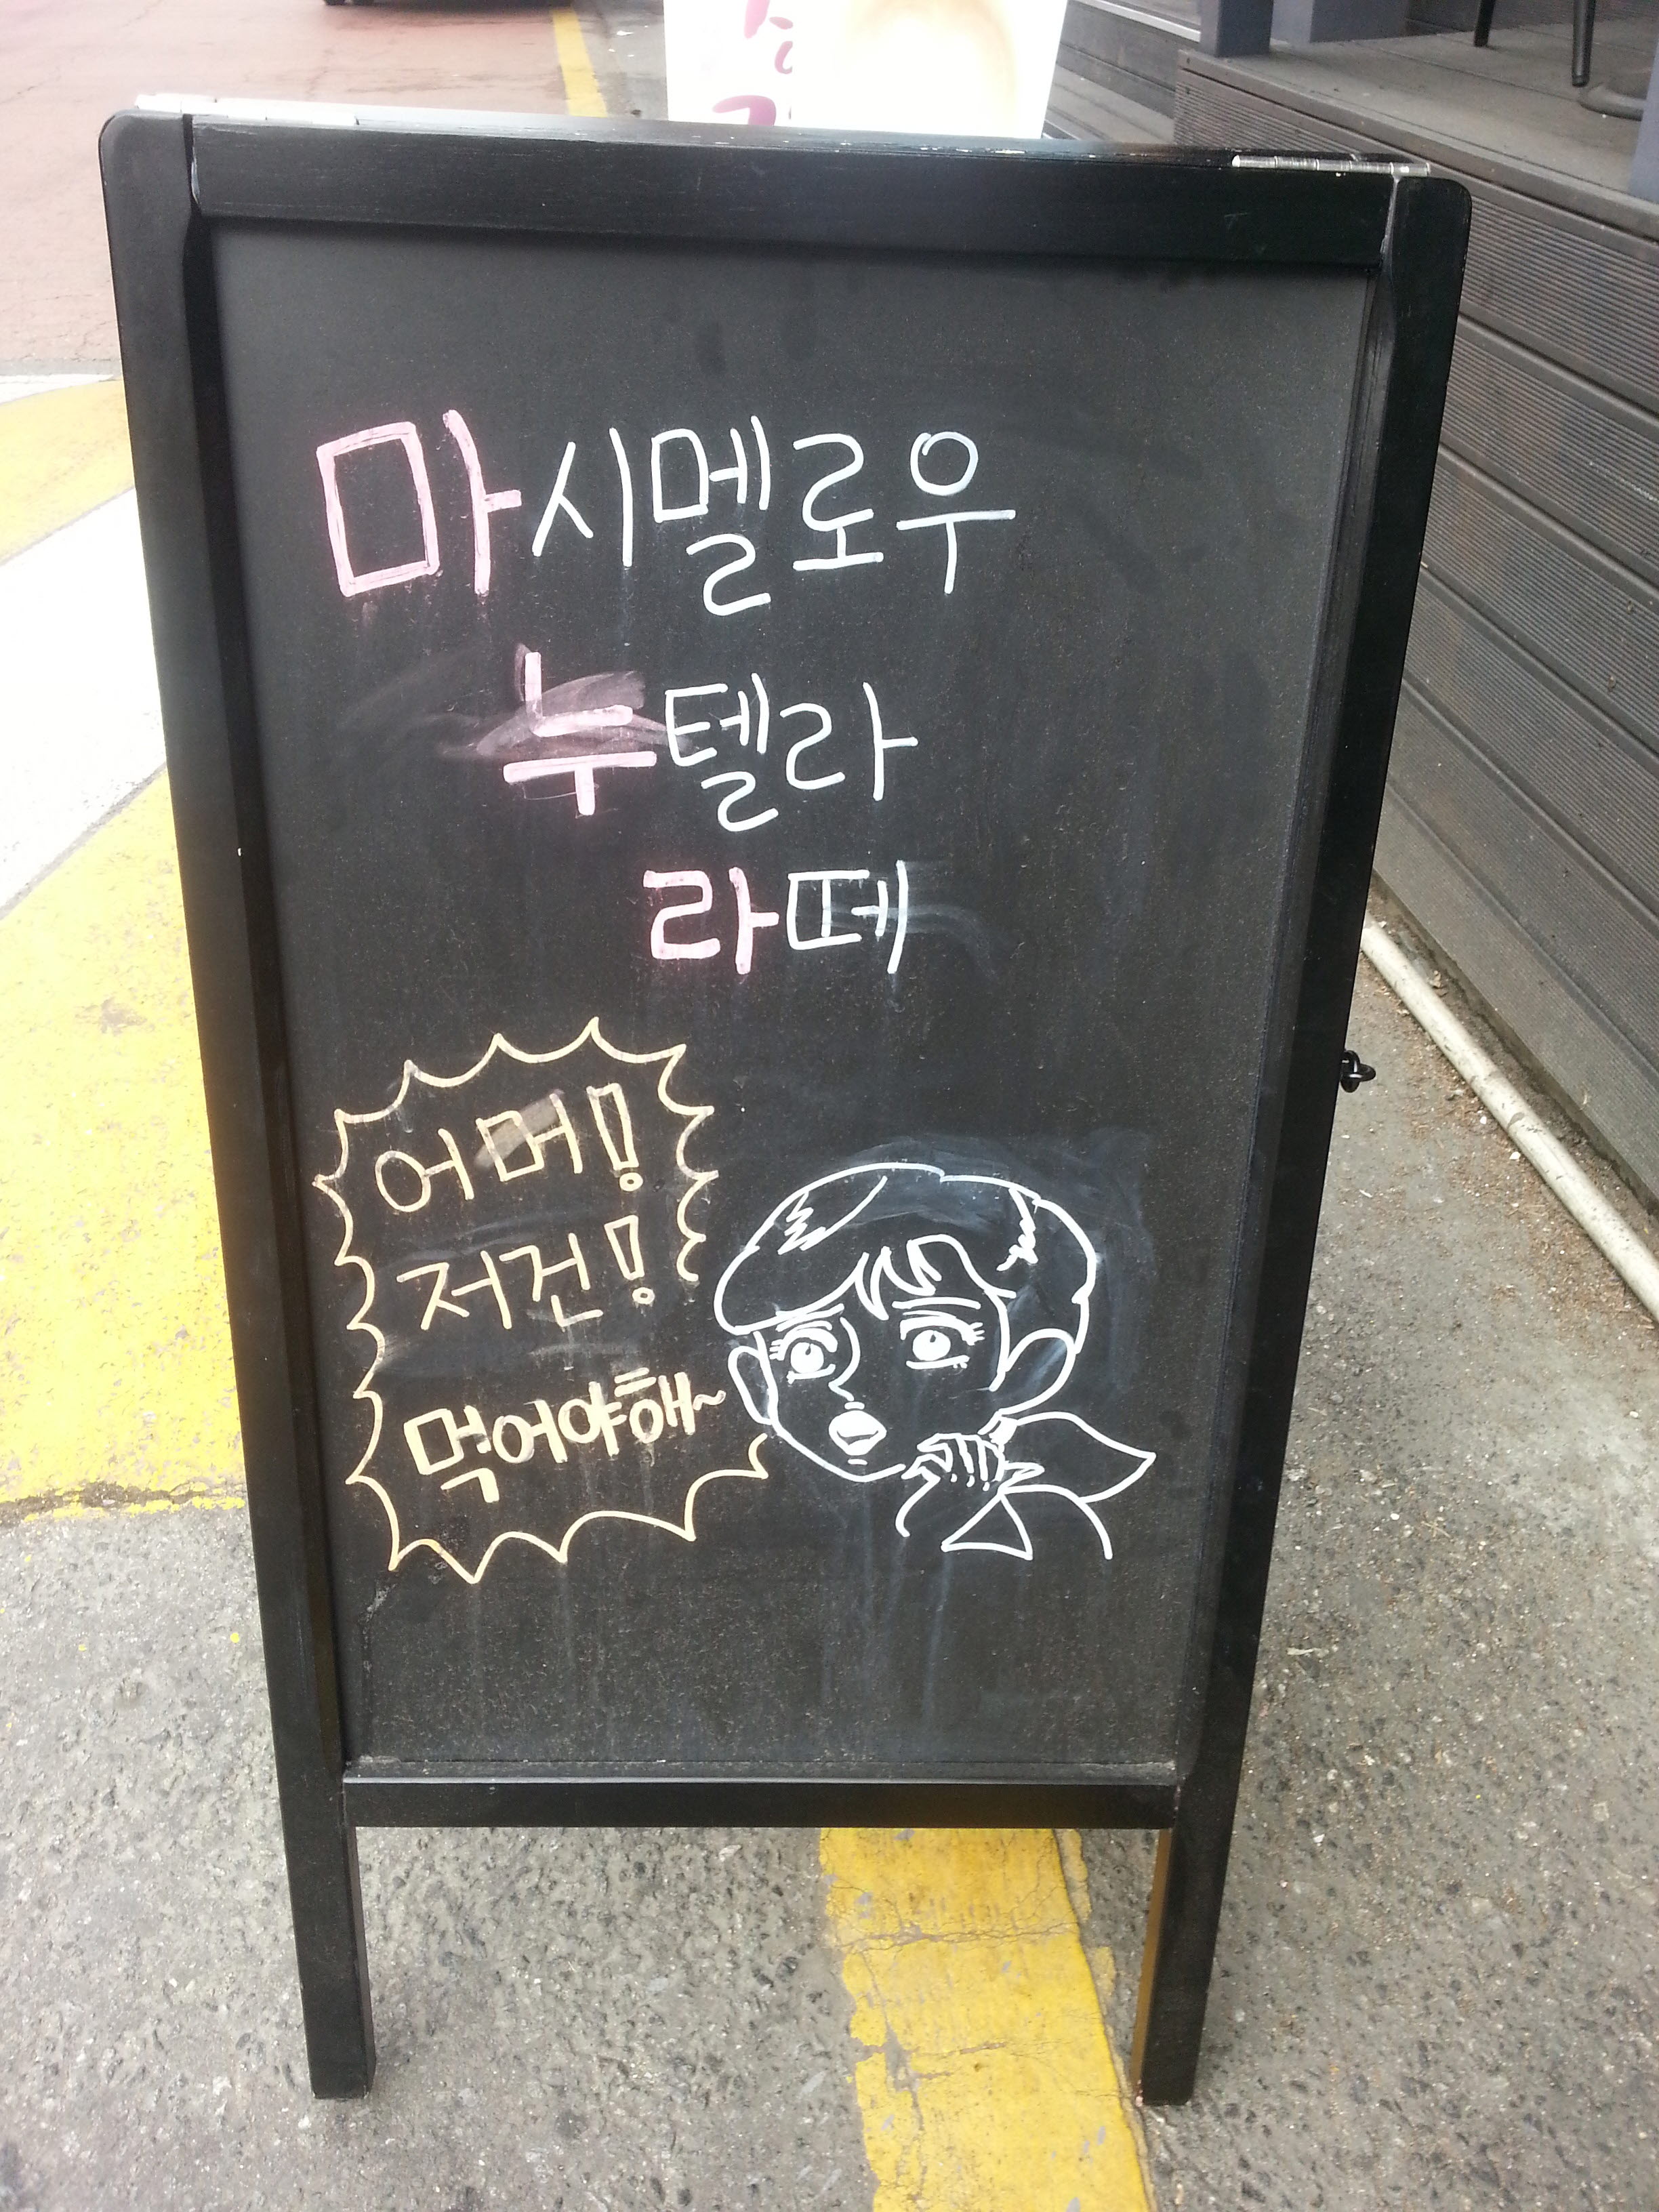 마시멜로우
누텔라
라떼
어머!
저건!
먹어야해~